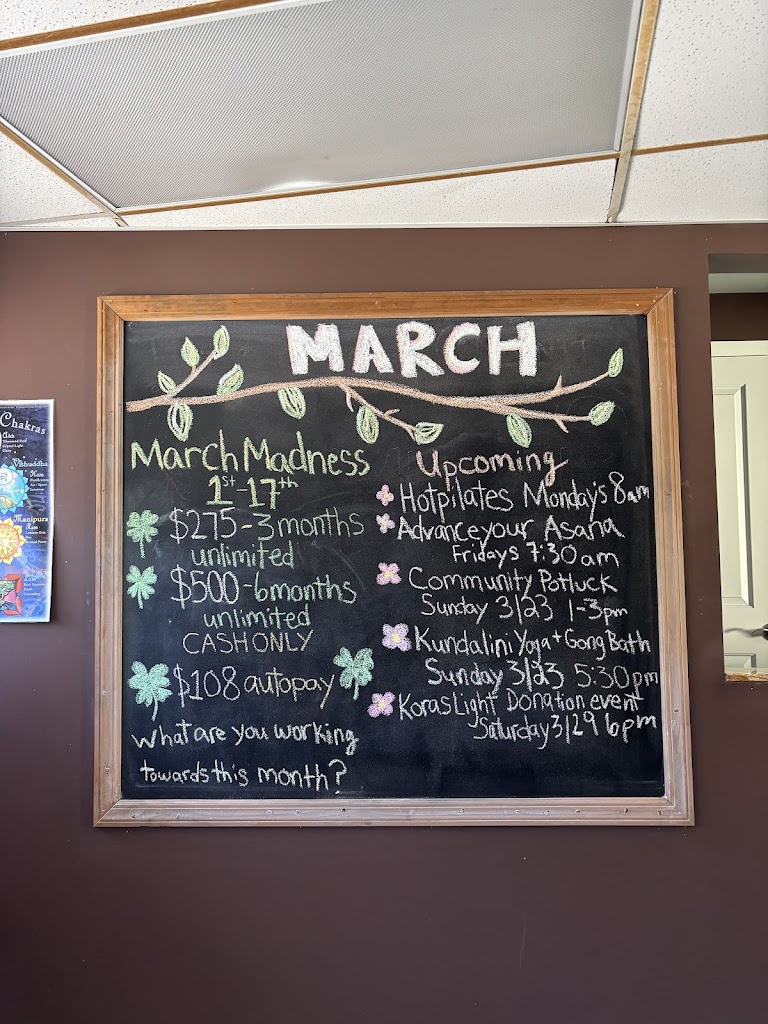 MARCH
March Madness
1st-17th
$275-3 months
unlimited
$500-6 months
unlimited
CASH ONLY
$108 autopay
What are you working
towards this month?
Upcoming
Hotpilates Monday's 8am
Advance your Asana
Fridays 7:30am
Community Potluck
Sunday 3/23 1-3pm
Kundalini Yoga + Gong Bath
Sunday 3/23 5:30pm
Koras Light Donation event
Saturday 3/29 6pm
Chakras
Vishuddha
Ham
Manipura
Ram